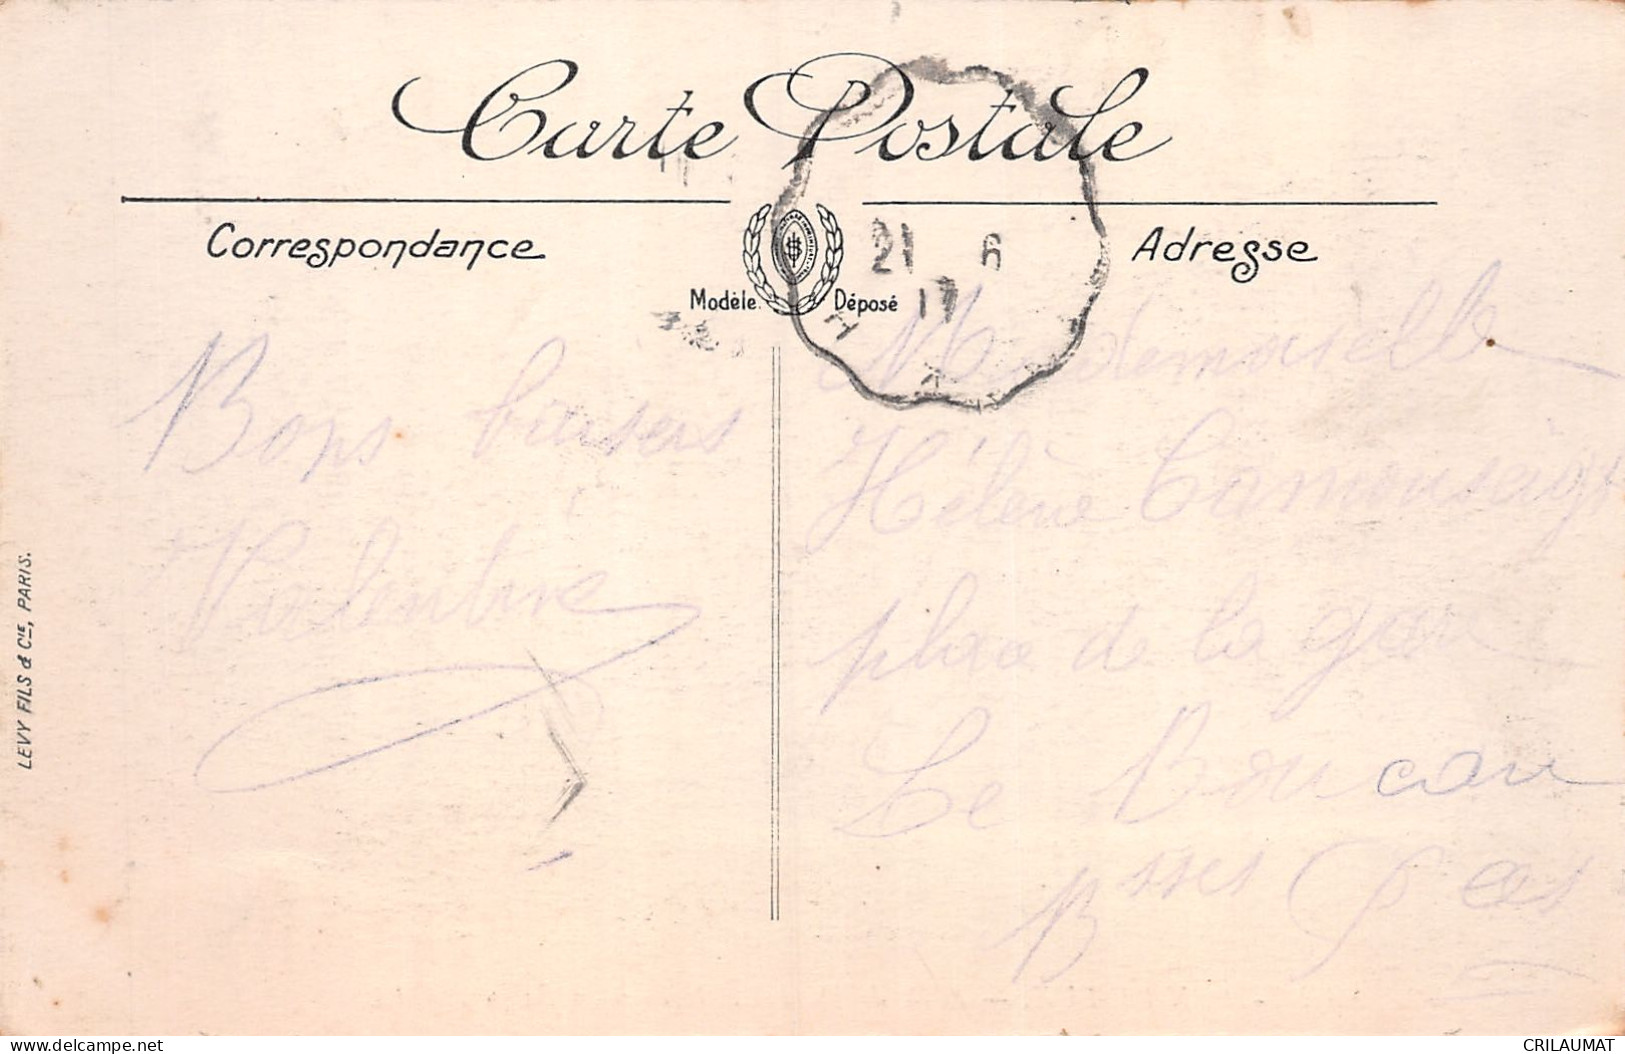 Carte Postale
Correspondance
Adresse
Modèle Déposé
21 6
17
Bons baisers
Valentine
Mademoiselle
Hélène
place de la gare
Le Boucau
Bsses P
LEVY FILS & CIE, PARIS.
delcampe.net
CRILAUMAT